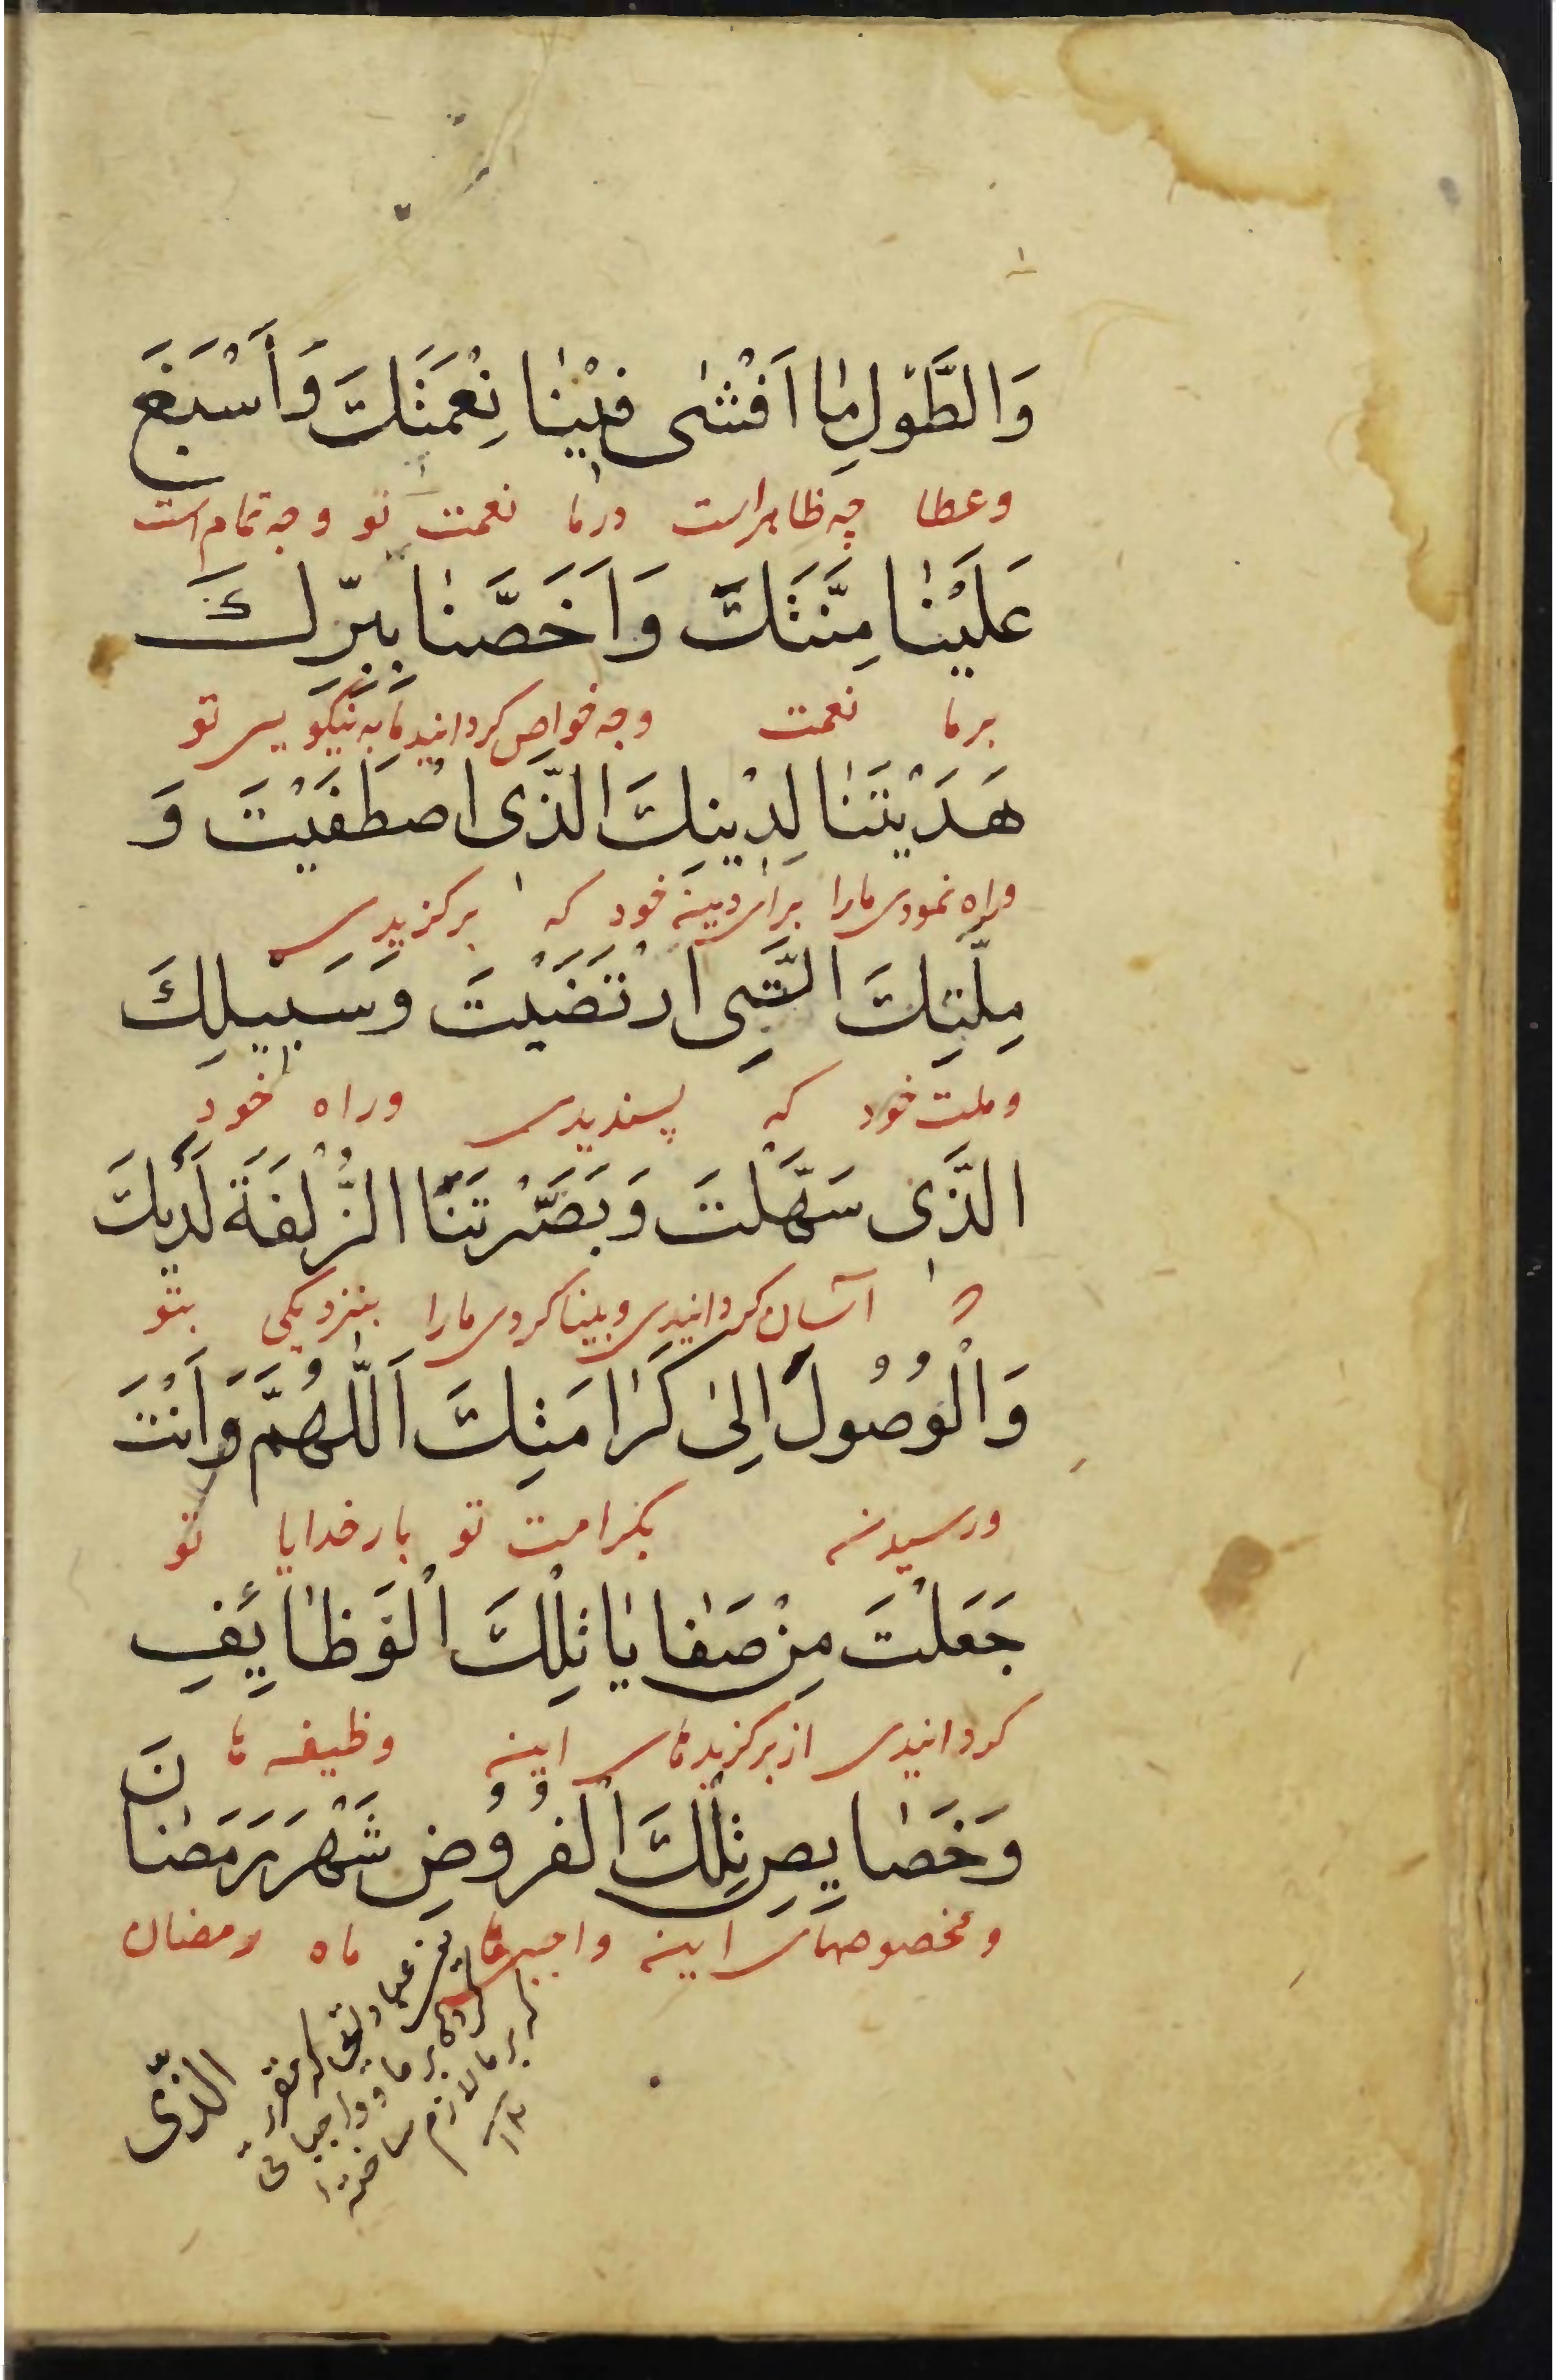 وَالطَّوْلِ مَا اَفْشٰى فِیْنٰا نِعْمَتَكَ وَأَسْبَغَ
وعطا چه ظاهر است در ما نعمت تو و چه تمام است
عَلَیْنٰا مِنَّتَكَ وَاَخَصَّنٰا بِبِرِّكَ
بر ما نعمت و چه خواص کردانید ما به نیکویی تو
هَدَیْتَنٰا لِدِیْنِكَ الَّذِی اصْطَفَیْتَ وَ
وراه نمودی مارا برای دین خود که برکزیدی
مِلَّتِكَ الَّتِی ارْتَضَیْتَ وَسَبِیلِكَ
وملت خود که پسندیدی وراه خود
الَّذِی سَهَّلْتَ وَبَصَّرْتَنَا الزُّلْفَةَ لَدَیْكَ
که آسان کردانیدی و بینا کردی مارا بنزدیکی بتو
وَالْوُصُولَ اِلیٰ کَرٰامَتِكَ اَللّٰهُمَّ وَاَنْتَ
ورسیدن بکرامت تو بار خدایا تو
جَعَلْتَ مِنْ صَفٰایٰا تِلْكَ الْوَظٰایِٔفِ
کردانیدی از برکزیدهای این وظیفه ها
وَخَصٰایِصِ تِلْكَ الْفُرُوْضِ شَهْرَ رَمَضٰانَ
ومخصوصهای این واجبهای ماه رمضان
الَّذِی